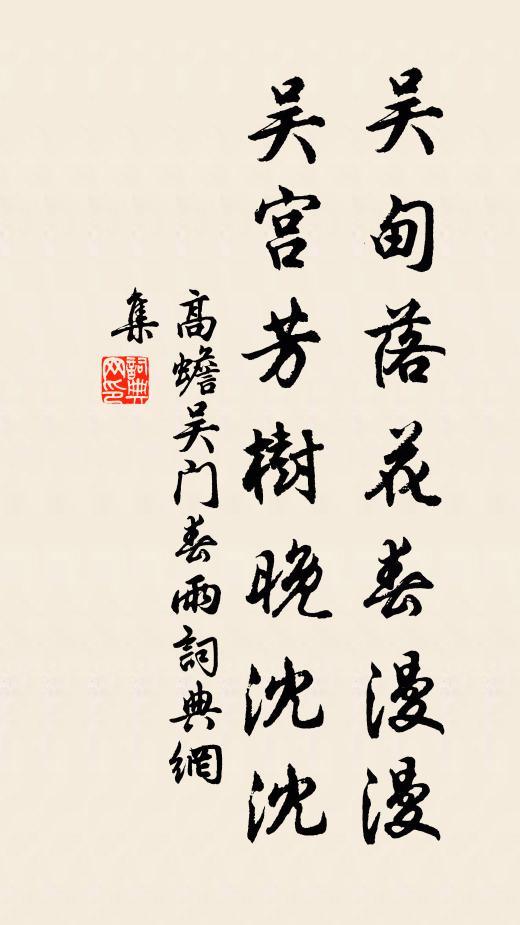 吴甸落花春漫漫
吴宫芳樹晚沈沈
高蟾吴门春雨詞典網
集
詞典
网印